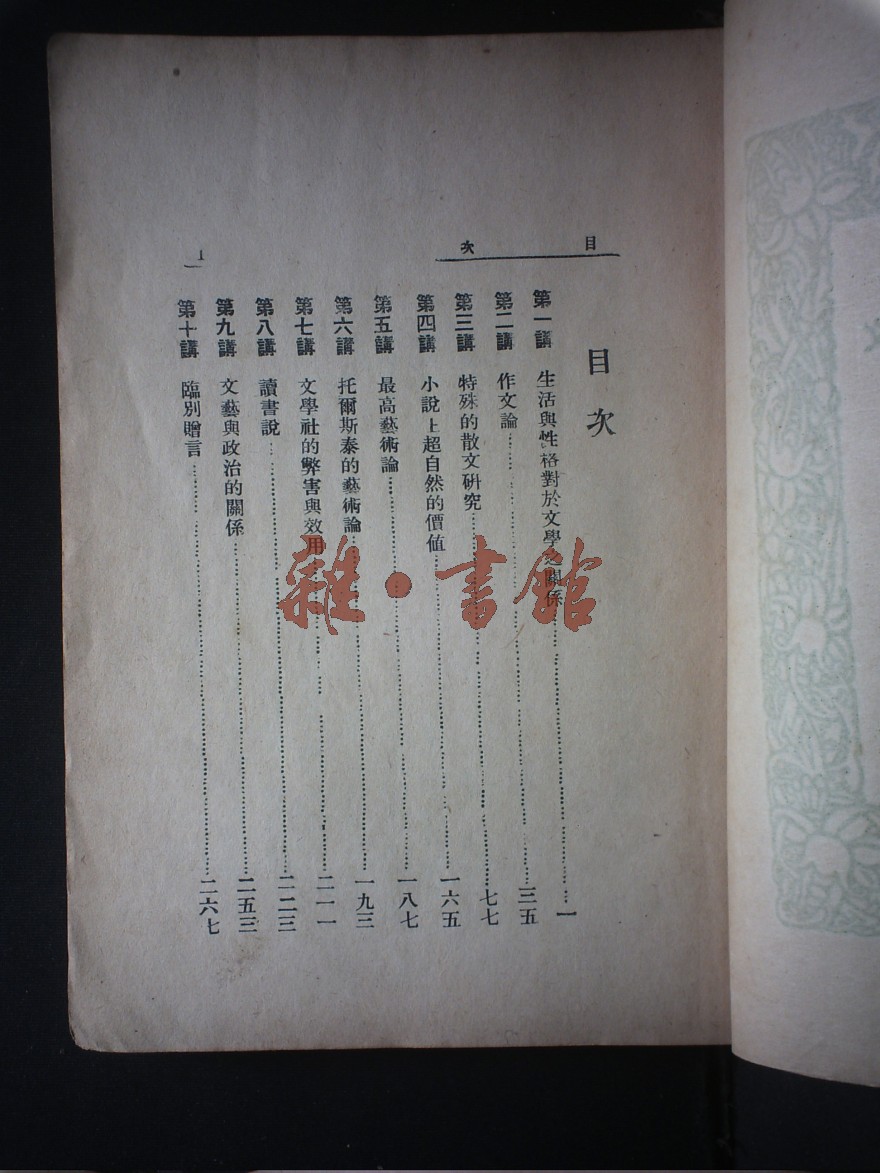 目次
目次
第一講 生活與性格對於文學之關係……一
第二講 作文論……三五
第三講 特殊的散文研究……七七
第四講 小說上超自然的價値……一六五
第五講 最高藝術論……一八七
第六講 托爾斯泰的藝術論……一九三
第七講 文學社的弊害與效用……二一一
第八講 讀書說……二二三
第九講 文藝與政治的關係……二五三
第十講 臨別贈言……二六七
1
雜·書館